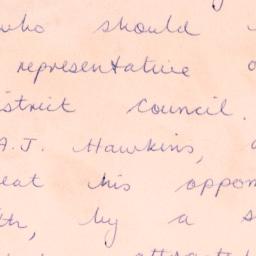 who should
representative
istrict Council.
A.J. Hawkins,
eat his oppon
th, by a s